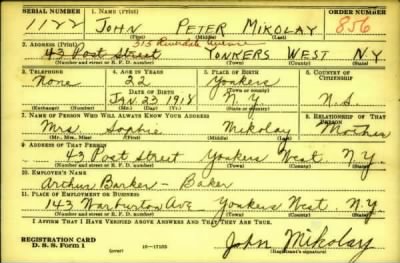 SERIAL NUMBER 1. NAME (Print) ORDER NUMBER
1122 JOHN PETER MIKOLAY 856
(First) (Middle) (Last)
2. ADDRESS (Print) 315 Riverdale Avenue
43 Post Street YONKERS WEST N Y
(Number and street or R. F. D. number) (Town) (County) (State)
3. TELEPHONE 4. AGE IN YEARS 5. PLACE OF BIRTH 6. COUNTRY OF CITIZENSHIP
None 22 Yonkers
DATE OF BIRTH (Town or county)
JAN. 23 1918 N.Y. U.S.
(Exchange) (Number) (Mo.) (Day) (Yr.) (State or country)
7. NAME OF PERSON WHO WILL ALWAYS KNOW YOUR ADDRESS 8. RELATIONSHIP OF THAT PERSON
Mrs. Sophie Mikolay Mother
(Mr., Mrs., Miss) (First) (Middle) (Last)
9. ADDRESS OF THAT PERSON
43 Post Street Yonkers West. N.Y.
(Number and street or R. F. D. number) (Town) (County) (State)
10. EMPLOYER'S NAME
Arthur Barker - Baker
11. PLACE OF EMPLOYMENT OR BUSINESS
143 Warburton Ave Yonkers West. N.Y.
(Number and street or R. F. D. number) (Town) (County) (State)
I AFFIRM THAT I HAVE VERIFIED ABOVE ANSWERS AND THAT THEY ARE TRUE.
REGISTRATION CARD
D. S. S. Form 1 (over) 16—17105 John Mikolay
(Registrant's signature)